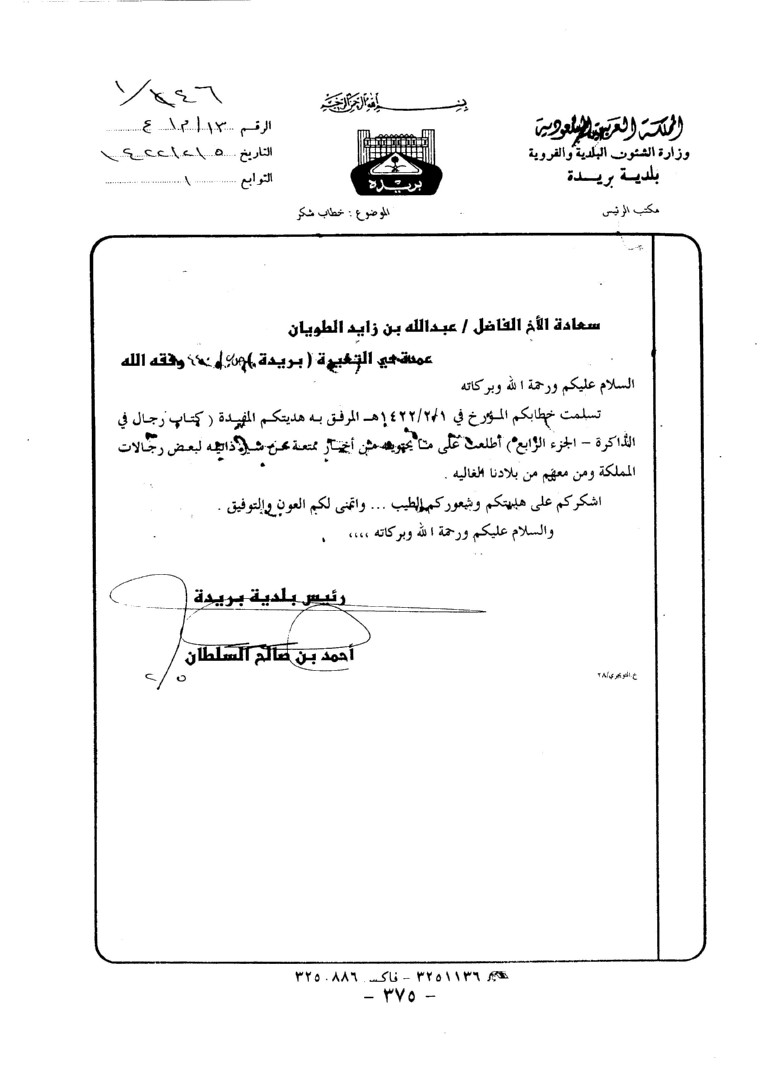 بسم الله الرحمن الرحيم
المملكة العربية السعودية
وزارة الشئون البلدية والقروية
بلدية بريدة
مكتب الرئيس
بريدة
الرقم
التاريخ ١٤٢٢/٢/٥
التوابع ١
الموضوع : خطاب شكر
سعادة الأخ الفاضل / عبدالله بن زايد الطويان
عمدة حي ( بريدة ) وفقه الله
السلام عليكم ورحمة الله وبركاته
تسلمت خطابكم المؤرخ في ١٤٢٢/٢/١هـ المرفق به هديتكم المفيدة ( كتاب رجال في
الذاكرة – الجزء الرابع ) أطلعت على ما يحتويه من أخبار ممتعة عن ذاتيه لبعض رجالات
المملكة ومن معهم من بلادنا الغاليه .
اشكركم على هديتكم وشعوركم الطيب ... واتمنى لكم العون والتوفيق .
والسلام عليكم ورحمة الله وبركاته ،،،،
رئيس بلدية بريدة
أحمد بن صالح السلطان
ع.التويجري/٢٨
٣٢٥١١٣٦ – فاكس ٣٢٥٠٨٨٦
– ٣٧٥ –